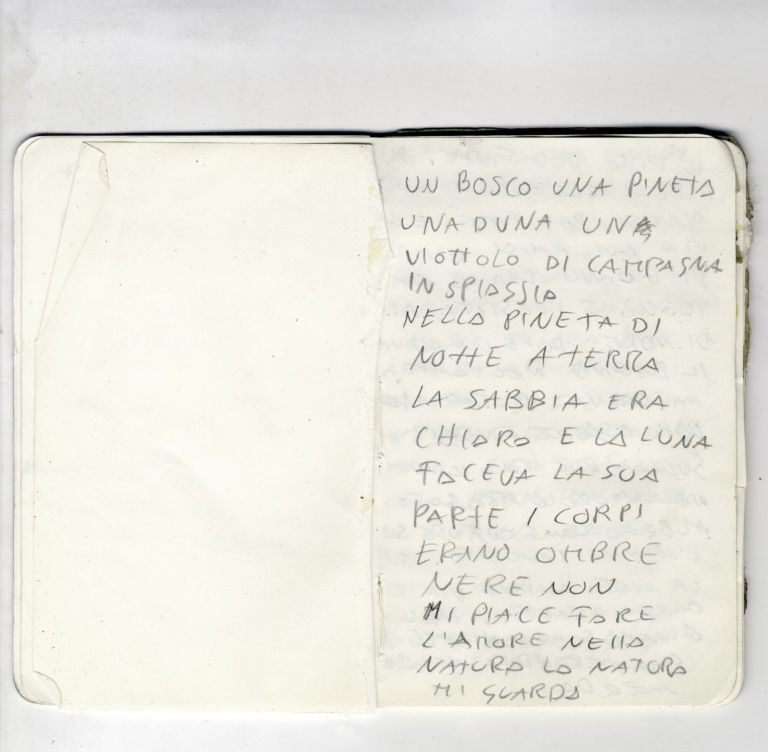 UN BOSCO UNA PINETA
UNA DUNA UN
VIOTTOLO DI CAMPAGNA
IN SPIAGGIA
NELLA PINETA DI
NOTTE A TERRA
LA SABBIA ERA
CHIARA E LA LUNA
FACEVA LA SUA
PARTE I CORPI
ERANO OMBRE
NERE NON
MI PIACE FARE
L'AMORE NELLA
NATURA LA NATURA
MI GUARDA